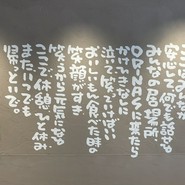 安心して何でも話せる
みんなの居場所
ORINASに来たら
かけひきなし
泣いて笑っていけばいい
おいしいもん食べた時の
笑顔がすき
笑うから元気になる
ここで休憩ひと休み
またいつでも
帰っといで。